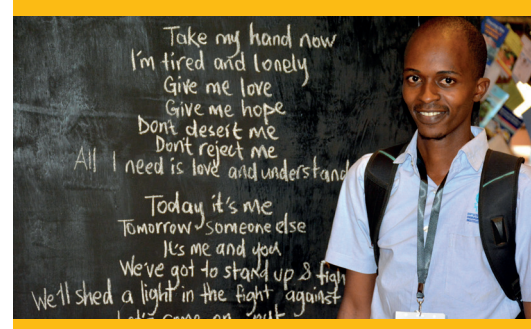 Take my hand now
I'm tired and lonely
Give me love
Give me hope
Dont desert me
Dont reject me
All I need is love and understand
Today it's me
Tomorrow someone else
It's me and you
We've got to stand up & figh
We'll shed a light in the fight against
Let's come on